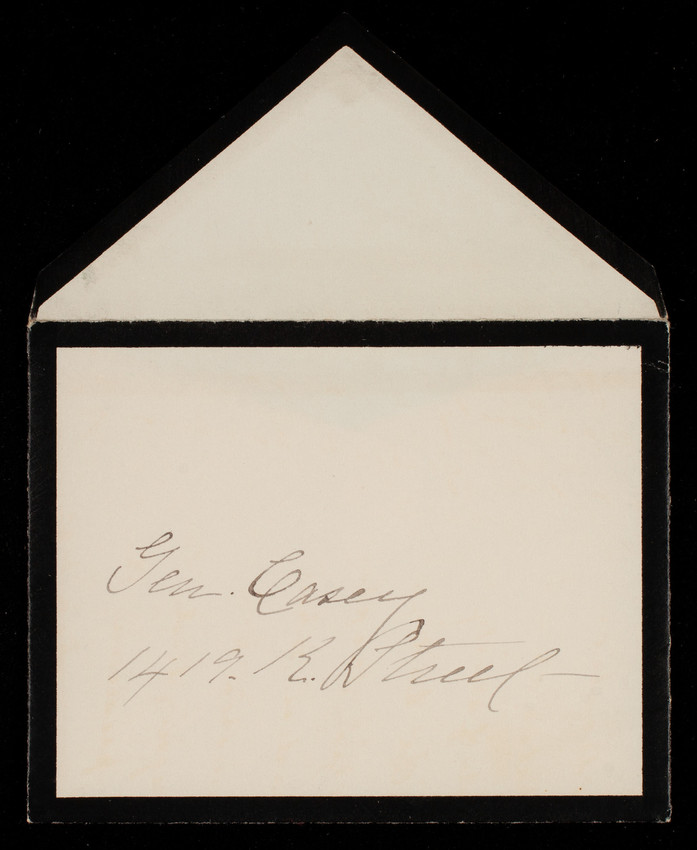 Gen. Casey
1419. K. Street